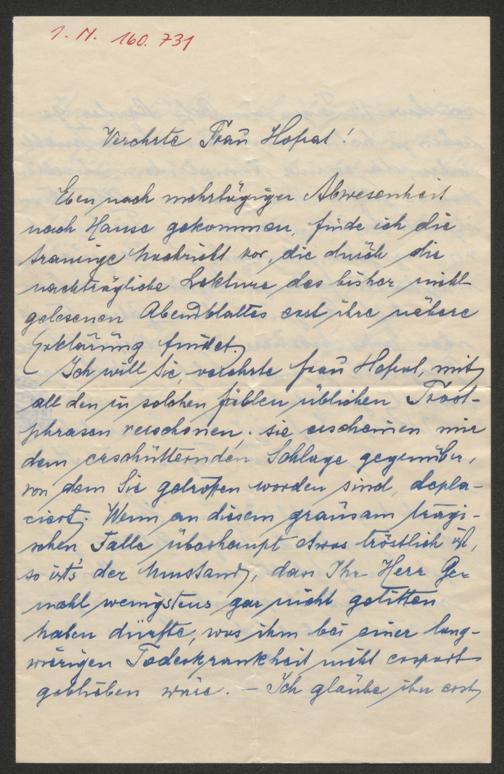 I. N. 160.731
Verehrte Frau Hofrat!
Eben nach mehrtägiger Abwesenheit
nach Hause gekommen, finde ich die
traurige Nachricht vor, die durch die
nachträgliche Lektüre des bisher nicht
gelesenen Abendblattes erst ihre nähere
Erklärung findet.
Ich will Sie, verehrte Frau Hofrat, mit
all den in solchen Fällen üblichen Trost-
phrasen verschonen; sie erscheinen mir
dem erschütternden Schlage gegenüber,
von dem Sie getroffen worden sind, depla-
ciert. Wenn an diesem grausam tragi-
schen Falle überhaupt etwas tröstlich ist,
so ist's der Umstand, dass Ihr Herr Ge-
mahl wenigstens gar nicht gelitten
haben dürfte, was ihm bei einer lang-
wierigen Todeskrankheit nicht erspart
geblieben wäre. – Ich glaube ihn erst